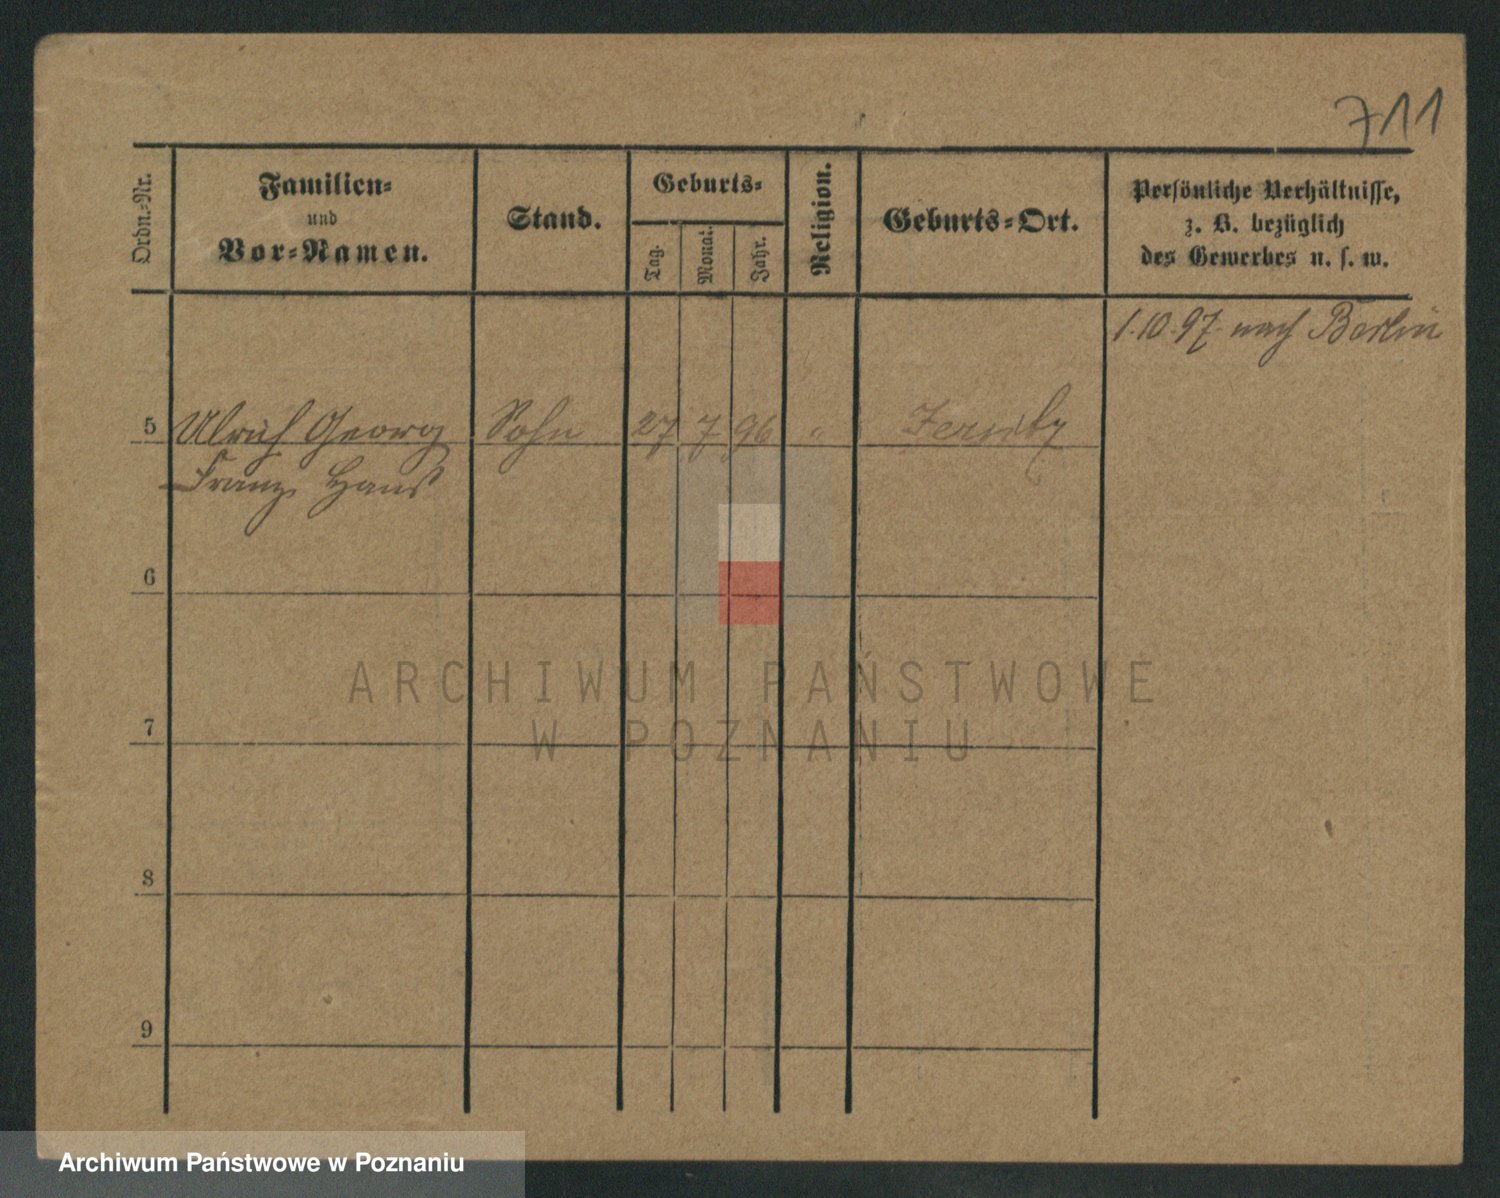 711
Ordn.-Nr.
Familien-
und
Vor-Namen.
Stand.
Geburts-
Tag.
Monat.
Jahr.
Religion.
Geburts-Ort.
Persönliche Verhältnisse,
z. B. bezüglich
des Gewerbes u. s. w.
1.10.97 nach Berlin
5 Ulrich Georg Sohn 27 7 96 "
Franz Hans
6
7
8
9
ARCHIWUM PAŃSTWOWE
W POZNANIU
Archiwum Państwowe w Poznaniu